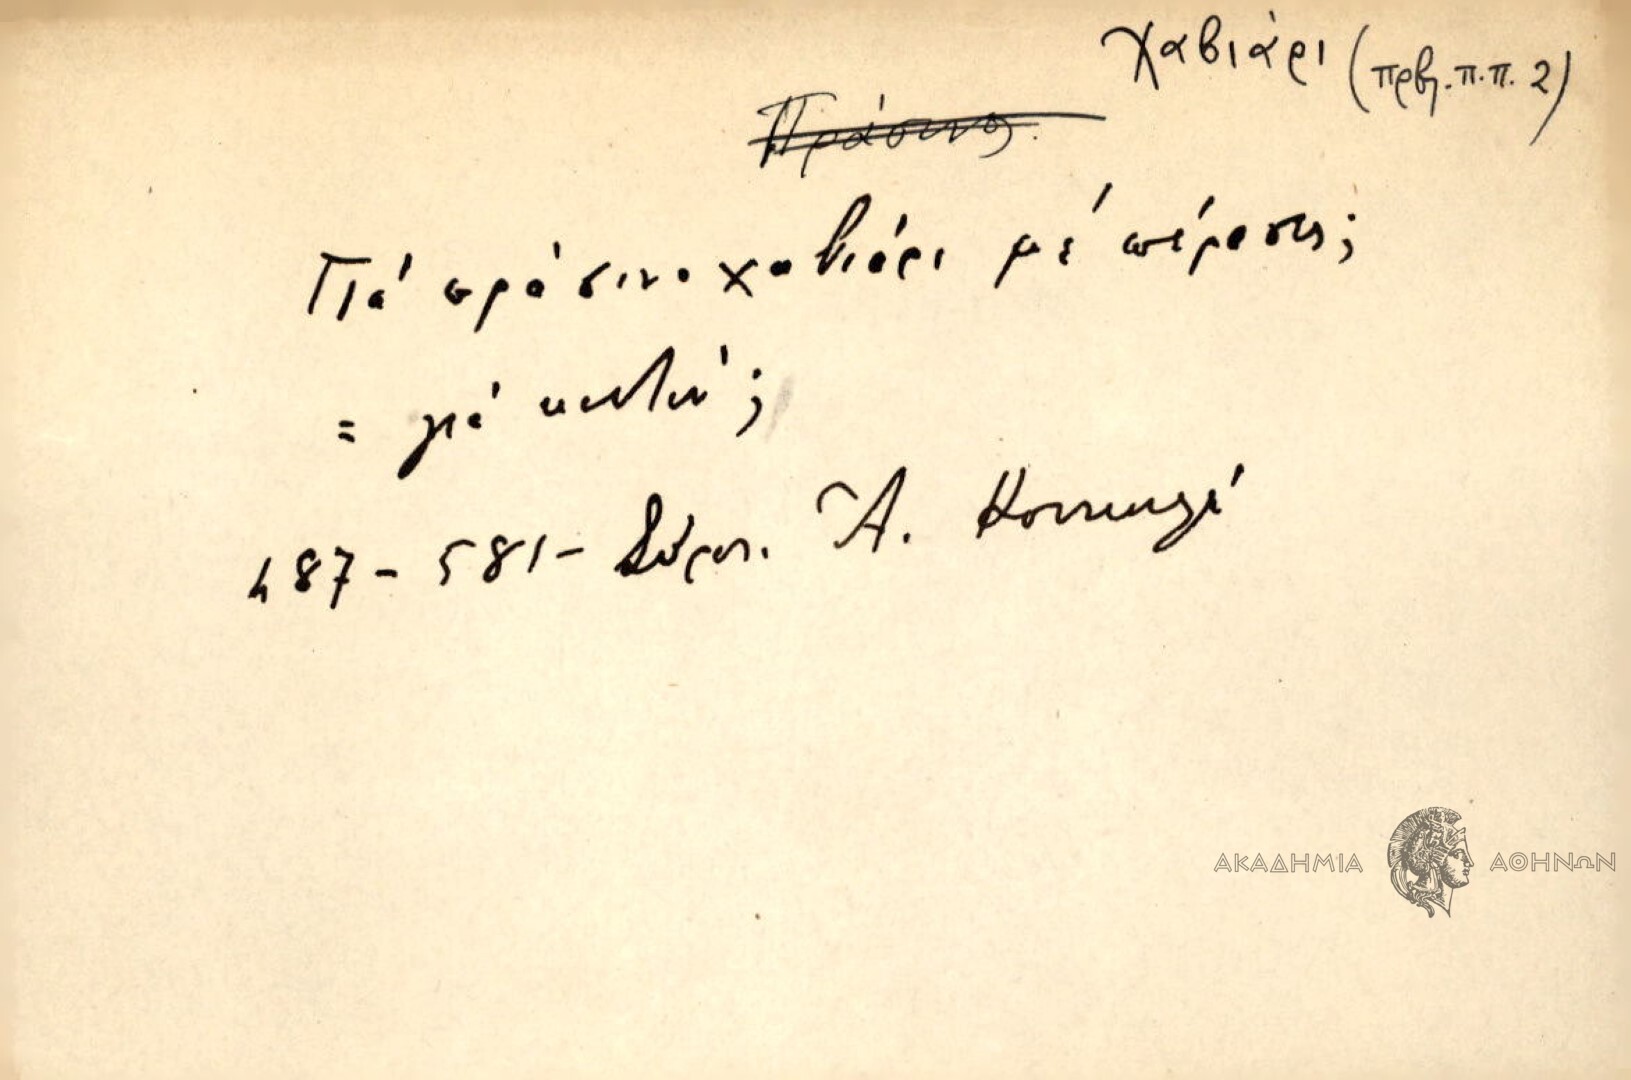 χαβιάρι (πρβ. π.π. 2)
Πράσινος.
Γιά πράσινο χαβιάρι μέ πέρασες;
= γιά κουτόν;
487 - 581 - Σύρου. Ἀ.
ΑΚΑΔΗΜΙΑ ΑΘΗΝΩΝ